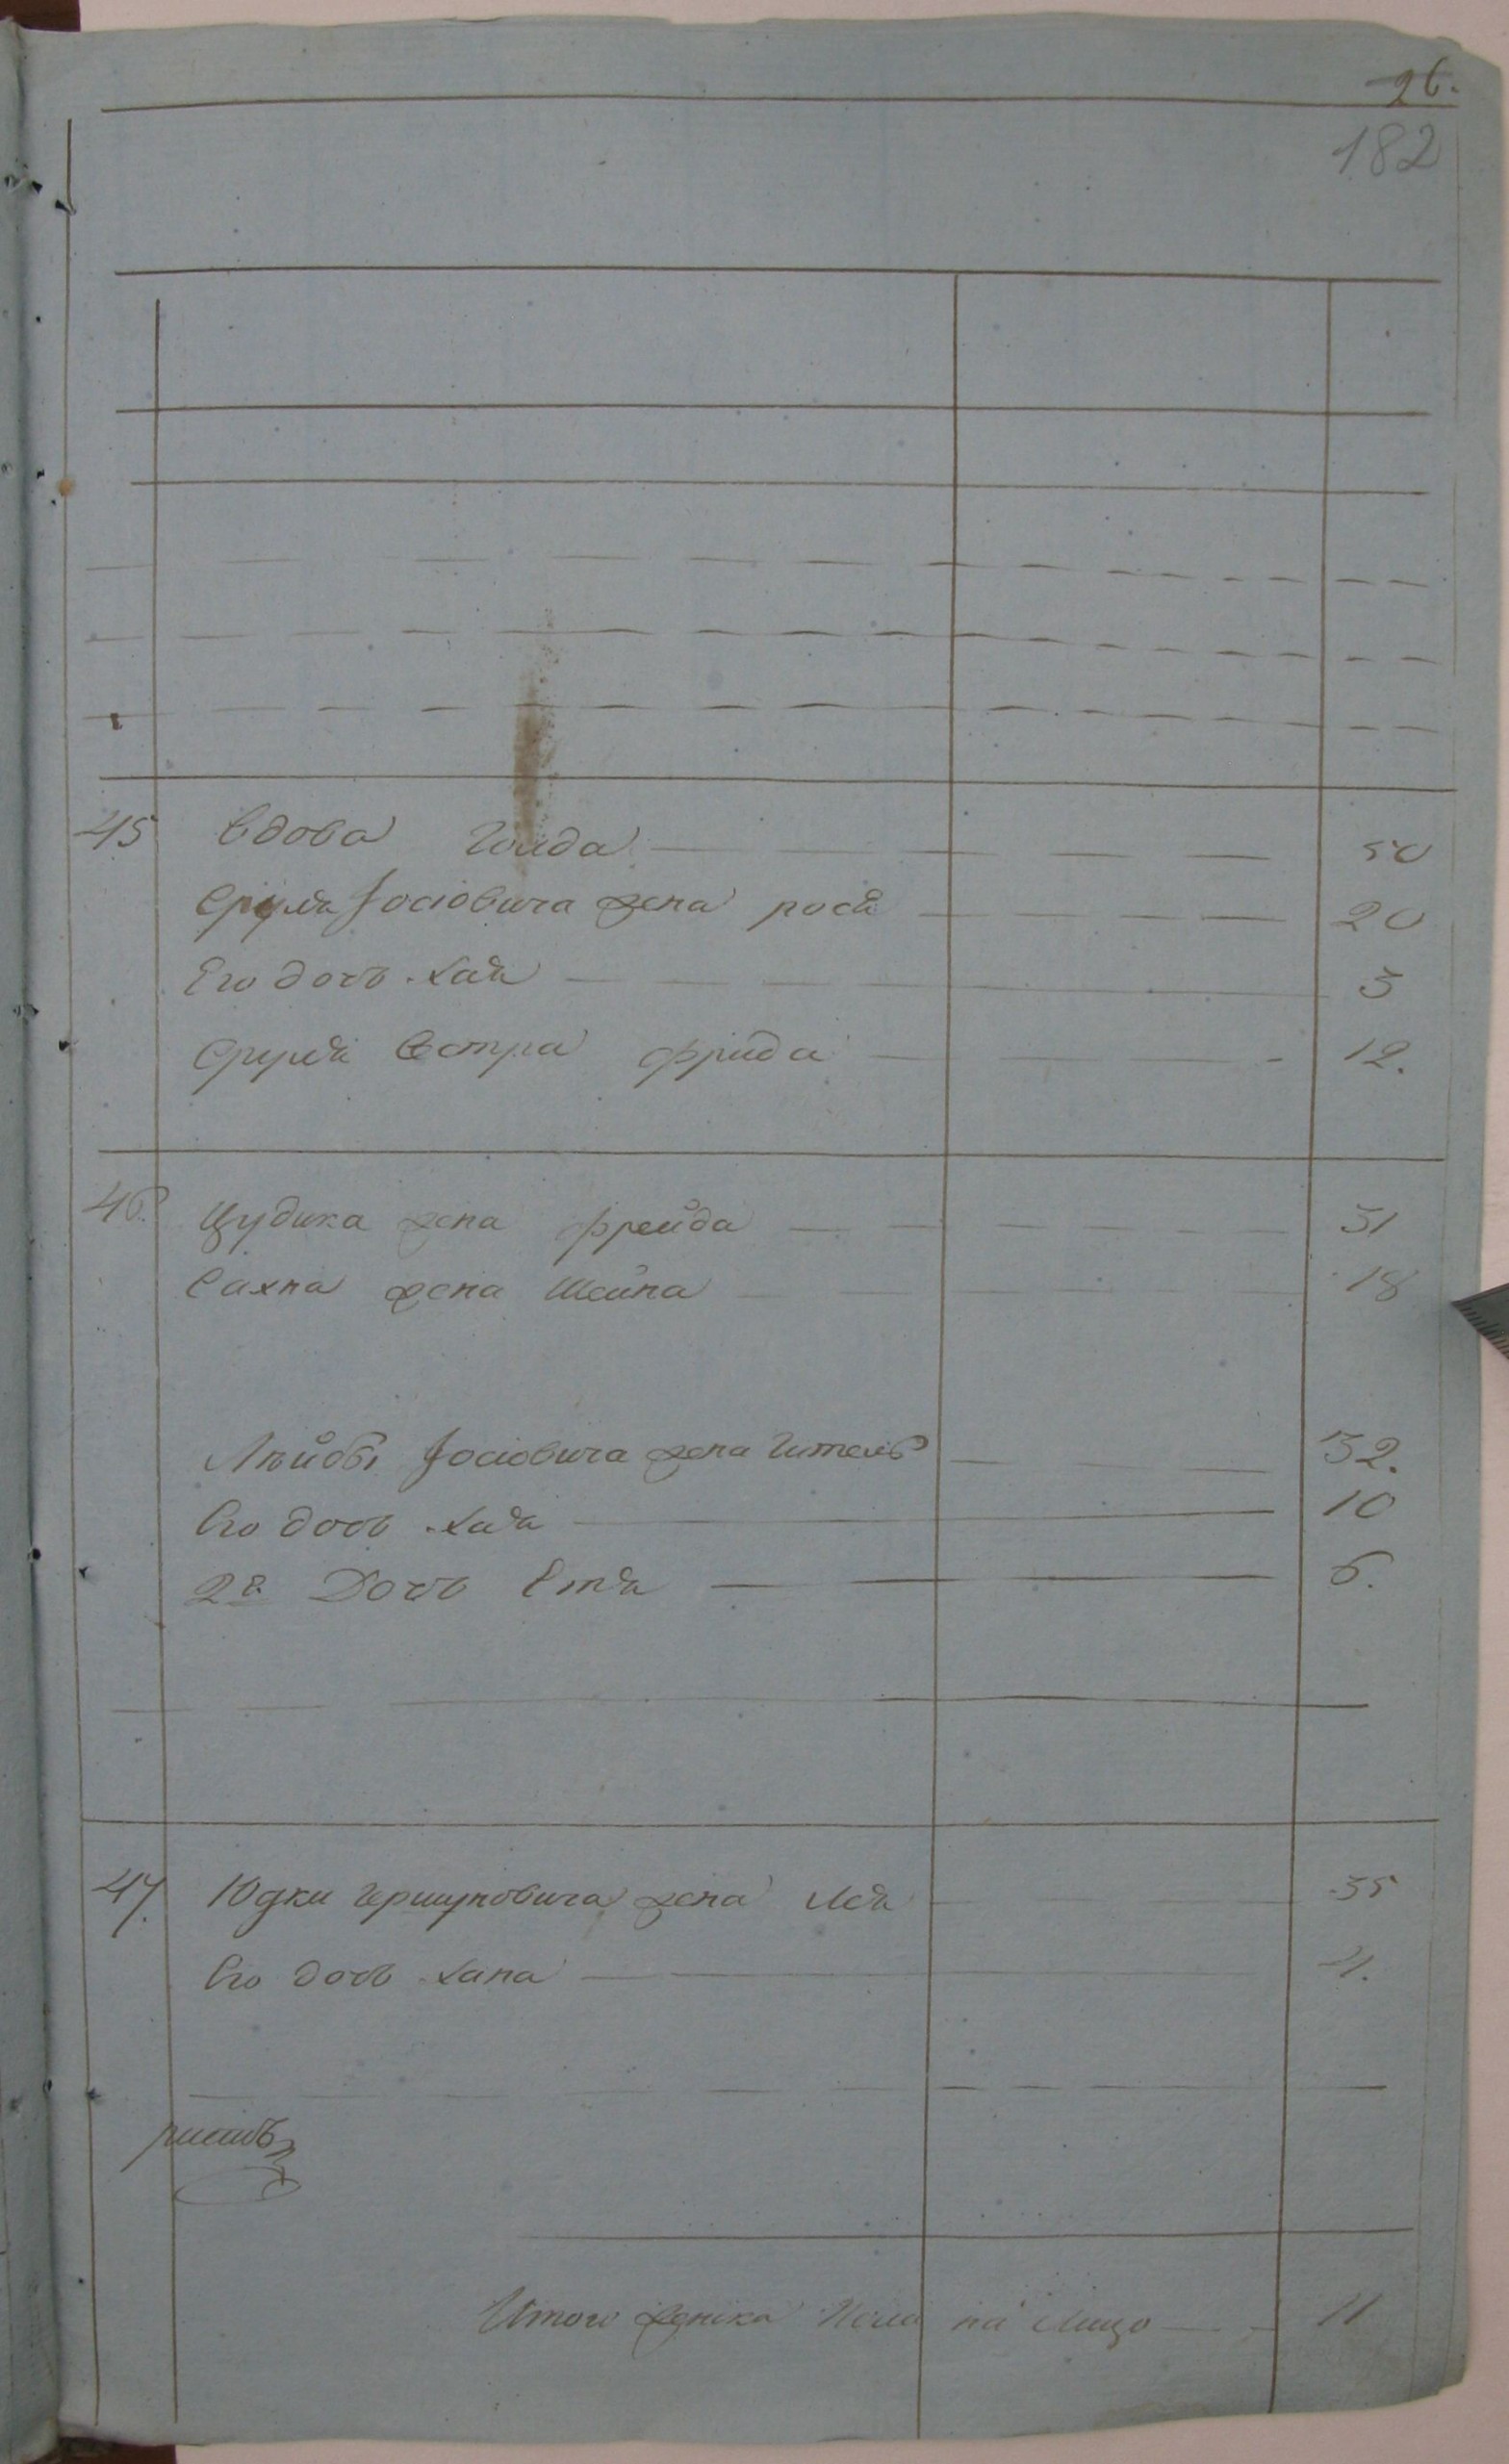 26.
182
45 Вдова Голда 50
Сруля Іосіовича жена рося 20
Его дочь Хая 3
Сруля Сестра фрида 12.
46. Цудика жена фрейда 31
Сахна жена Шейна 18
Лѣйбы Іосіовича жена Гитель 32.
Его дочь Хая 10
2я Дочь Етя 6.
47. Юдки Гершуновича жена Лея 35
Его дочь Хана 4.
Итого женска Пола на Лицо 11